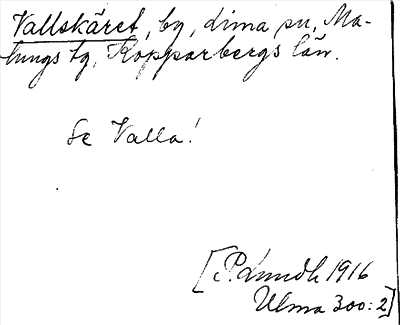 Vallskäret, by, Lima sn, Ma-
lungs tg, Kopparbergs län.
Se Valla!
[P. Lundh 1916
Ulma 300:2]